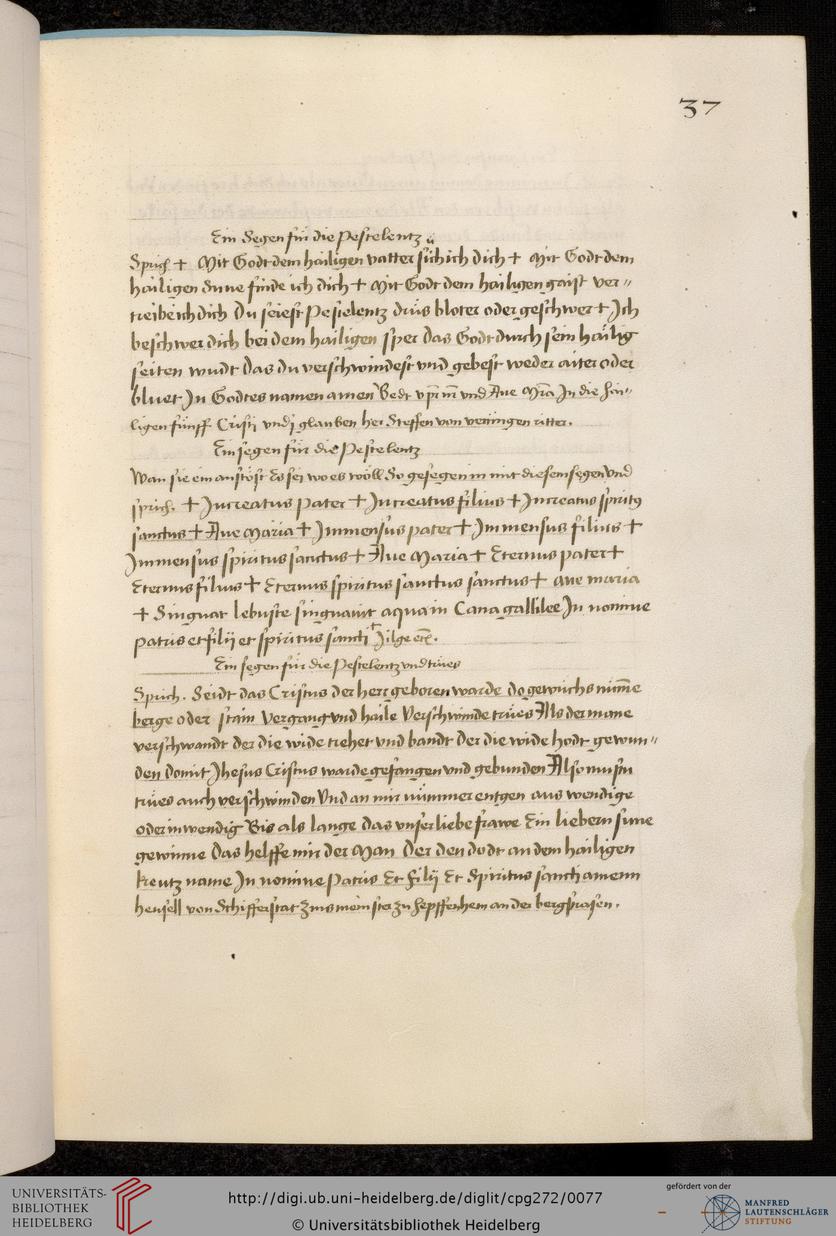 37
Ein Segen für die Pestelentz
Sprich + Mit Godt dem hailigen vatter süch ich dich + Mit Godt dem
hailigen sune finde ich dich + Mit Godt dem hailigen gaist ver„
treibe ich dich Du seiest Pestelentz drüs bloter oder geschwer + Ich
beschwer dich bei dem hailigen sper das Godt durch sein hailig
seiten wudt das du verschwindest vnd gebest weder aiter oder
bluet In Godtes namen amen Bedt v pr nr vnd Aue Mra In die hai„
ligen fünff Cristi vnd j glauben her Steffen von venningen ritter.
Ein segen für die Pestelentz
Wan sie ein anstöst Es sei wo es wöll So gesegen in mit diesem segen vnd
sprich. + Increatus pater + Increatus filius + Increatus spiritus
sanctus + Aue Maria + Immensus pater + Immensus filius +
Immensus spiritus sanctus + Aue Maria + Eternus pater +
Eternus filius + Eternus spiritus sanctus sanctus + aue maria
+ Singuat lebuste singuauit aqua in Cana gallilee In nomine
patris et filij et spiritus sancti +
Ein segen für die Pestelentz vnd trües
Sprich. Seidt das Cristus der herr geboren warde do gewuchs nüme
berge oder stain Vergang vnd haile Verschwinde trües Als der mane
verschwandt der die wide trehet vnd bandt Der die wide hodt gewun„
den domit Jhesus Cristus warde gefangen vnd gebunden Also mustu
trües auch verschwinden Vnd an mir nümmer entgen aus wendige
oder inwendig Bis als lange das vnser liebe frawe Ein liebern sune
gewinne Das helffe mir der Man Der den dodt an dem hailigen
kreutz name In nomine Patris Et filij Et Spiritus sancti amenn
hensell von Schifferstat Zinsmeinster zu hepffenhem an der bergstrasen.
UNIVERSITÄTS-
BIBLIOTHEK
HEIDELBERG
http://digi.ub.uni-heidelberg.de/diglit/cpg272/0077
© Universitätsbibliothek Heidelberg
gefördert von der
MANFRED
LAUTENSCHLÄGER
STIFTUNG